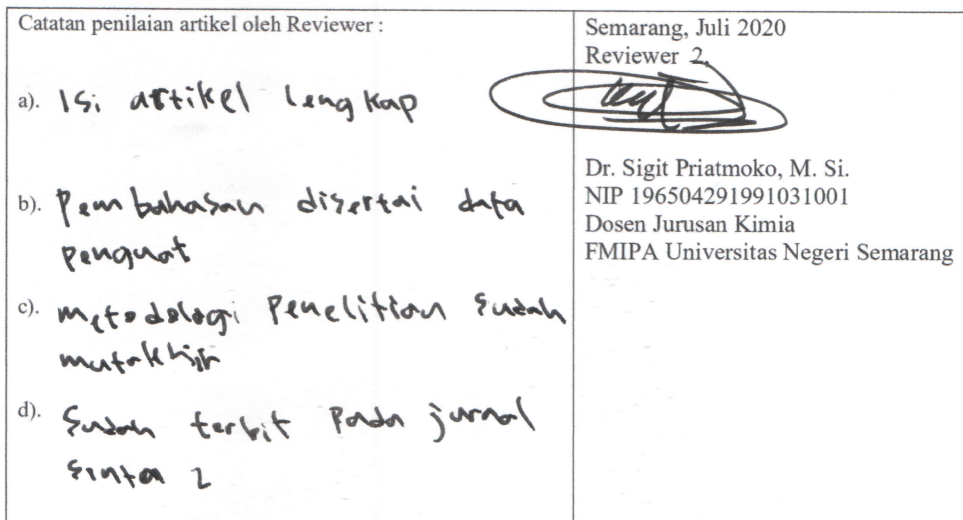 Catatan penilaian artikel oleh Reviewer :
a). Isi artikel lengkap
b). Pembahasan disertai data
penguat
c). metodologi Penelitian sudah
mutakhir
d). Sudah terbit Pada jurnal
Sinta 2
Semarang, Juli 2020
Reviewer 2,
Dr. Sigit Priatmoko, M. Si.
NIP 196504291991031001
Dosen Jurusan Kimia
FMIPA Universitas Negeri Semarang